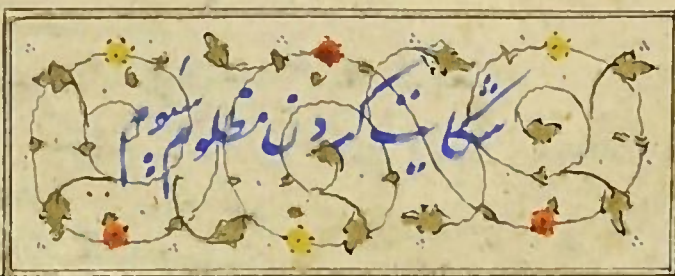 شکایت کردن مظلوم سیوم